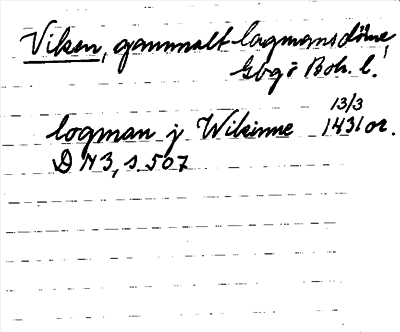 Viken, gammalt lagmansdöme,
Gbg o Boh. l.
logman j Wikinne 13/3 1431 or.
DN3, s. 507